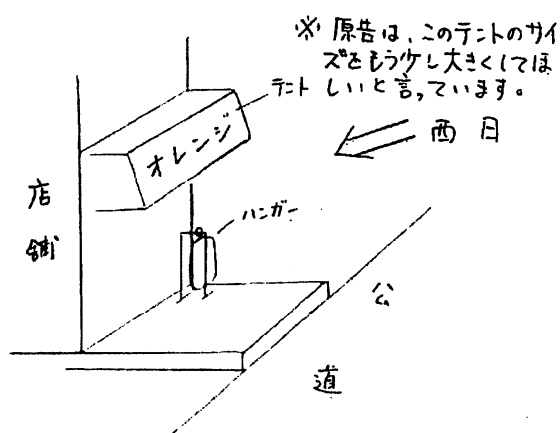 ※ 原告は、このテントのサイ
ズをもう少し大きくしてほ
しいと言っています。
テント
オレンジ
西日
店舗
ハンガー
公道